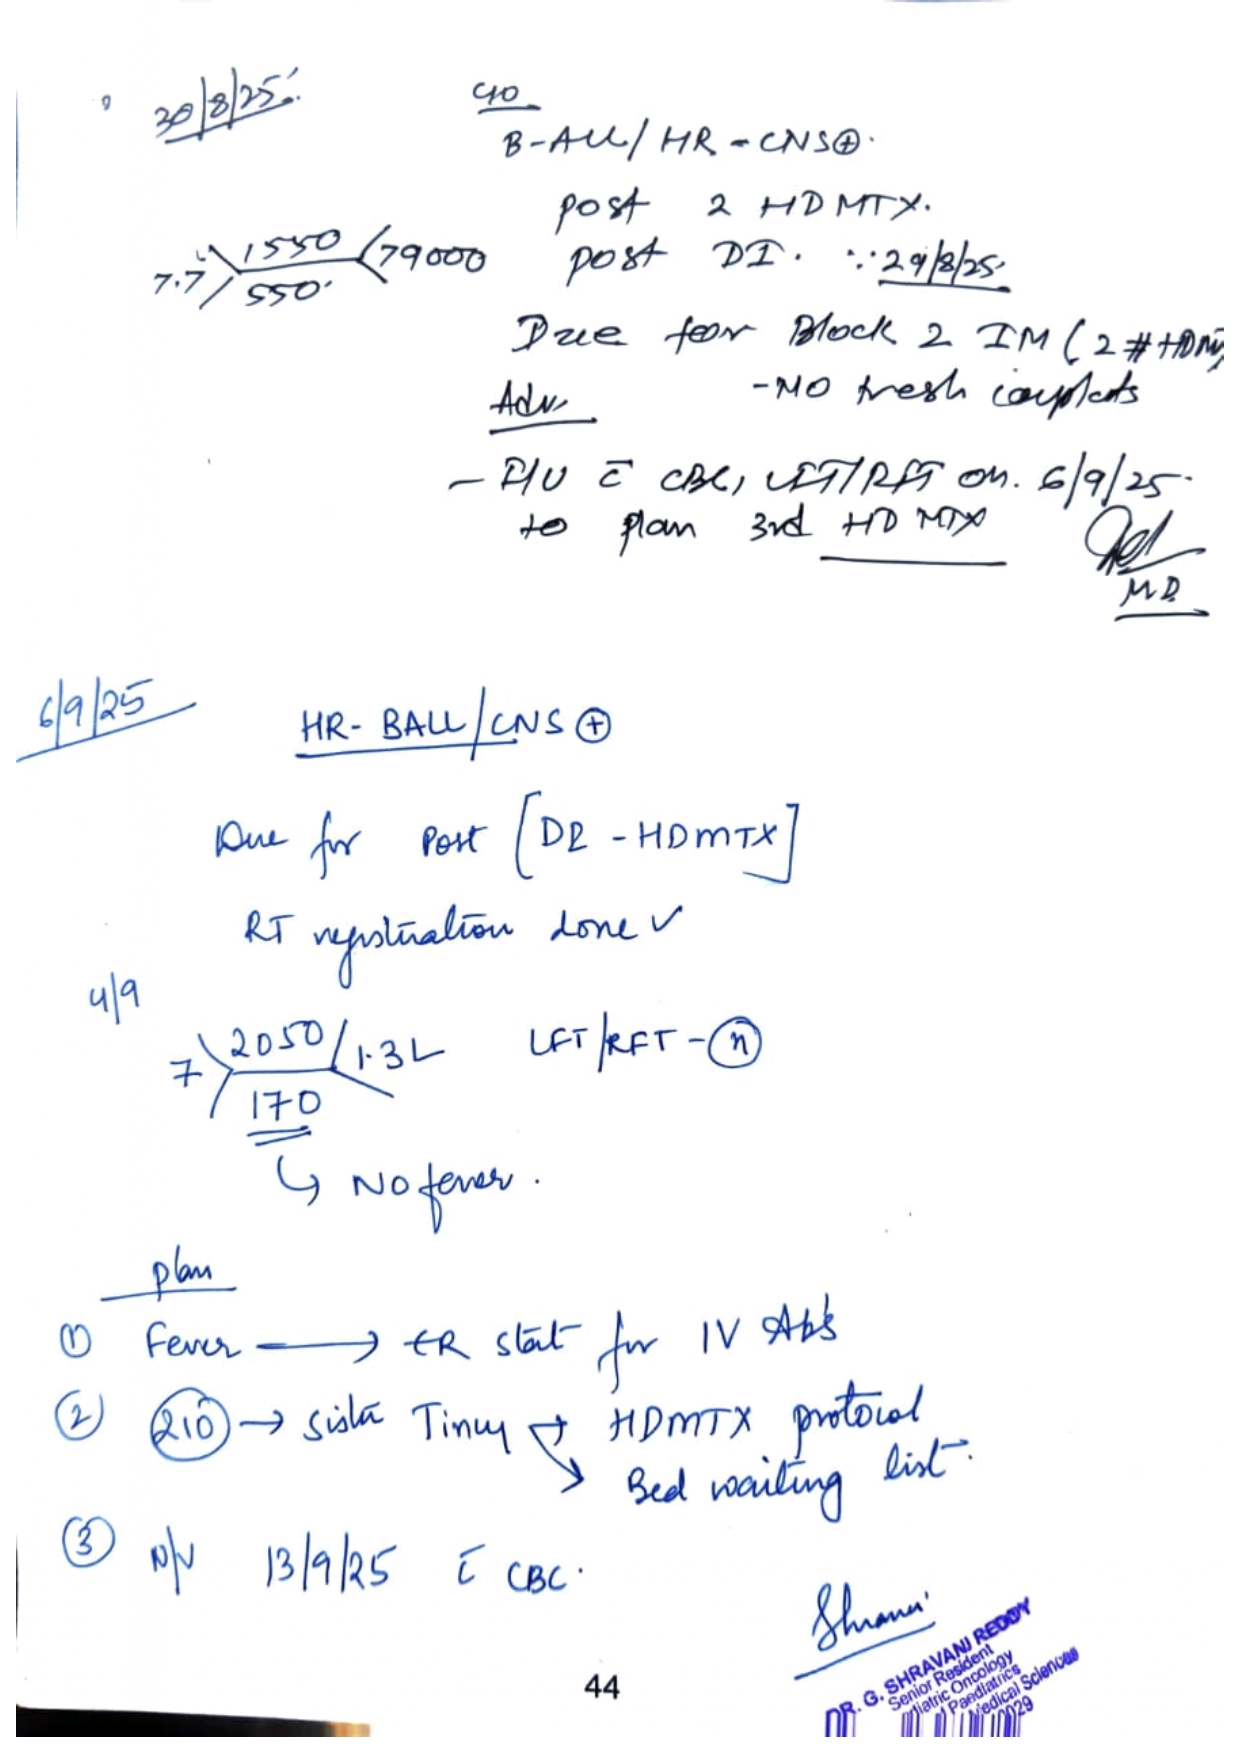 30/8/25
c/o
B-ALL/ HR - CNS⊕.
post 2 HDMTX.
7.7 1550 79000
550
post DI. ∵ 29/8/25
Due for Block 2 IM (2 # HDM
Adv
- NO fresh complaints
- F/U c̄ CBC, LFT/RFT on. 6/9/25.
to plan 3rd HD MTX
MD
6/9/25
HR- BALL/CNS ⊕
Due for Post [DI - HDMTX]
RT registration done ✓
4/9
7 2050 1.3L
170
LFT/RFT - ⓝ
↳ NO fever.
plan
① Fever → ER stat for IV Ab's
② 210 → Sister Tinu → HDMTX protocol
↘ Bed waiting list.
③ N/V 13/9/25 c̄ CBC.
DR. G. SHRAVANI REDDY
Senior Resident
diatric Oncology
Paediatrics
Medical Sciences
44